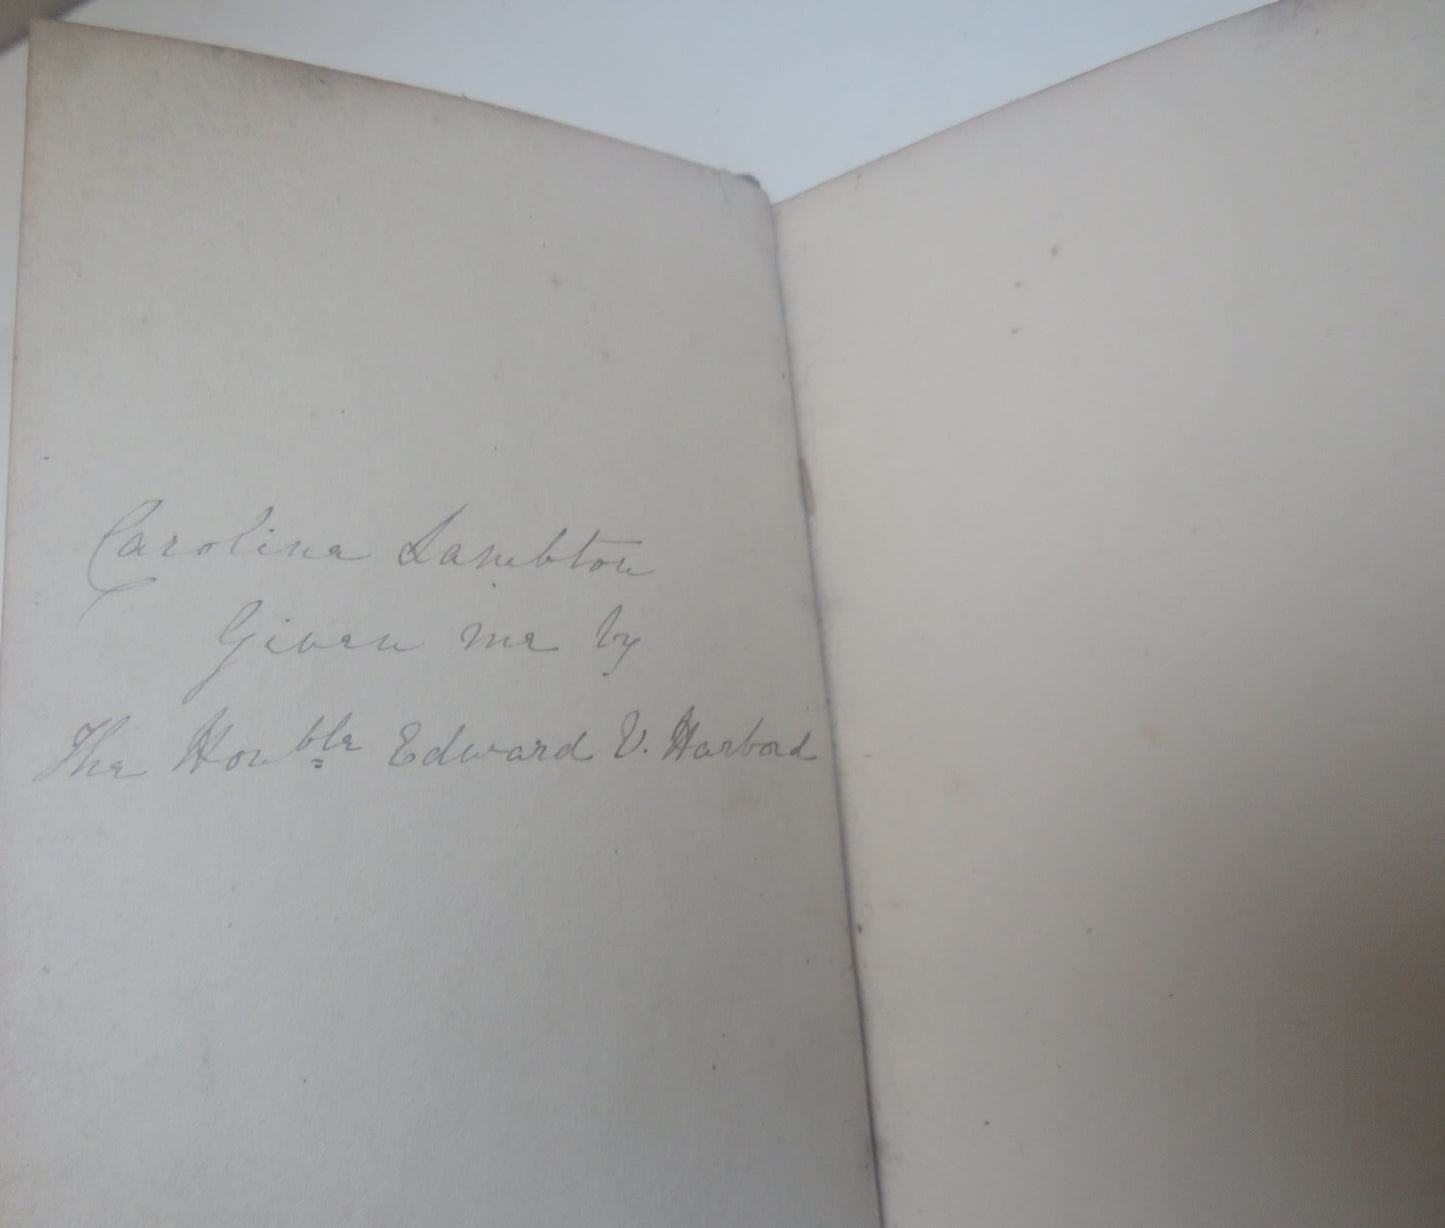 Caroline Lambton
Given me by
The Honble Edward V. Harbord